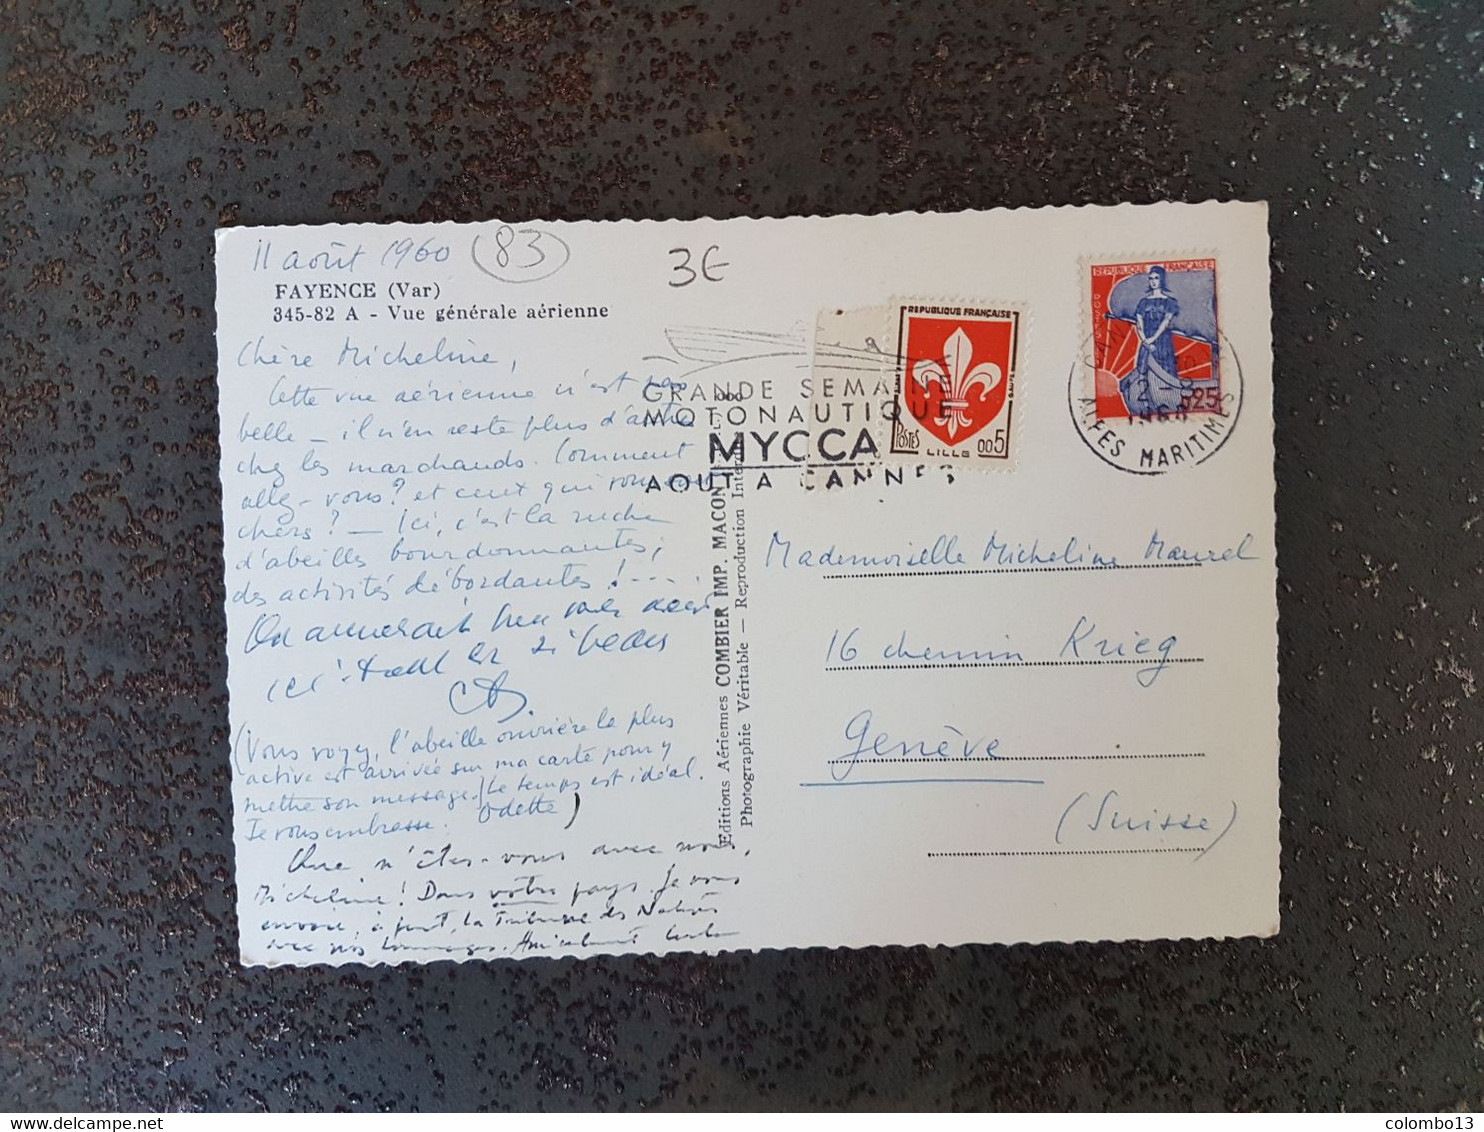 11 août 1960 (83)
3€
FAYENCE (Var)
345-82 A - Vue générale aérienne
Chère Micheline,
Cette vue aérienne n'est pas
belle – il n'en reste plus d'autre
chez les marchands. Comment
allez-vous? et ceux qui vous sont
chers? – Ici, c'est la ruche
d'abeilles bourdonnantes,
des activités débordantes!....
On aimerait bien vous avoir
ici
(Vous voyez, l'abeille ouvrière la plus
active est arrivée sur ma carte pour y
mettre son message.) Le temps est idéal.
Je vous embrasse. Odette)
Que n'êtes-vous avec nous,
Micheline! Dans votre pays. Je vous
envoie, à part, la Tribune des Nations
avec nos hommages. Amicalement
Editions Aériennes COMBIER IMP. MACON
Photographie Véritable — Reproduction
GRANDE SEMAINE
MOTONAUTIQUE
MYCCA
AOUT A CANNES
REPUBLIQUE FRANÇAISE
POSTES
LILLE
005
REPUBLIQUE FRANÇAISE
POSTES
0,25
ALPES MARITIMES
Mademoiselle Micheline Maurel
16 chemin Krieg
Genève
(Suisse)
colombo13